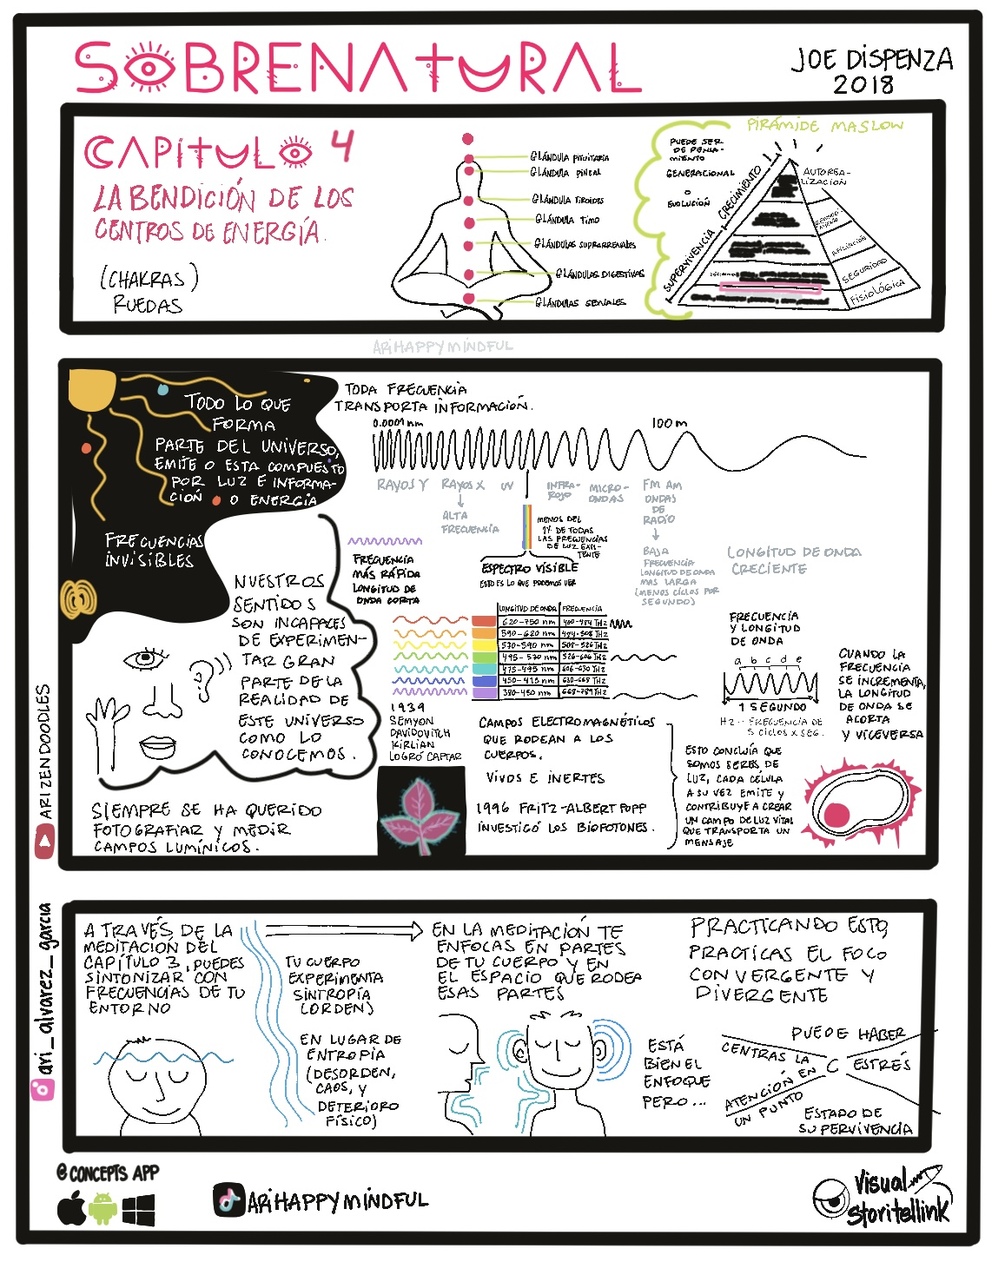 SOBRENATURAL
JOE DISPENZA
2018
CAPITULO 4
LA BENDICIÓN DE LOS
CENTROS DE ENERGÍA.
(CHAKRAS)
RUEDAS
GLÁNDULA PITUITARIA
GLÁNDULA PINEAL
GLÁNDULA TIROIDES
GLÁNDULA TIMO
GLÁNDULAS SUPRARRENALES
GLÁNDULAS DIGESTIVAS
GLÁNDULAS SEXUALES
PIRÁMIDE MASLOW
PUEDE SER
DE PENSA-
MIENTO
GENERACIONAL
O
EVOLUCIÓN
SUPERVIVENCIA
CRECIMIENTO
AUTOREA-
LIZACIÓN
AFILIACIÓN
SEGURIDAD
FISIOLÓGICA
ARIHAPPYMINDFUL
TODO LO QUE
FORMA
PARTE DEL UNIVERSO,
EMITE O ESTA COMPUESTO
POR LUZ E INFORMA-
CIÓN O ENERGÍA
FRECUENCIAS
INVISIBLES
TODA FRECUENCIA
TRANSPORTA INFORMACIÓN.
0.0001 nm
100 m
RAYOS Y
RAYOS X
UV
INFRA-
ROJO
MICRO-
ONDAS
FM AM
ONDAS
DE
RADIO
ALTA
FRECUENCIA
MENOS DEL
1% DE TODAS
LAS FRECUENCIAS
DE LUZ EXIS-
TENTE
BAJA
FRECUENCIA
LONGITUD DE ONDA
MAS LARGA
(MENOS CICLOS POR
SEGUNDO)
LONGITUD DE ONDA
CRECIENTE
FRECUENCIA
MÁS RÁPIDA
LONGITUD DE
ONDA CORTA
ESPECTRO VISIBLE
ESTO ES LO QUE PODEMOS VER
LONGITUD DE ONDA FRECUENCIA
620-750 nm 400-484 THz
590-620 nm 484-508 THz
570-590 nm 508-526 THz
495-570 nm 526-606 THz
475-495 nm 606-630 THz
450-475 nm 630-668 THz
380-450 nm 668-789 THz
NUESTROS
SENTIDOS
SON INCAPACES
DE EXPERIMEN-
TAR GRAN
PARTE DE LA
REALIDAD DE
ESTE UNIVERSO
COMO LO
CONOCEMOS.
FRECUENCIA
Y LONGITUD
DE ONDA
a b c d e
1 SEGUNDO
HZ -- FRECUENCIA DE
5 CICLOS X SEG.
CUANDO LA
FRECUENCIA
SE INCREMENTA,
LA LONGITUD
DE ONDA SE
ACORTA
Y VICEVERSA
1939
SEMYON
DAVIDOVITCH
KIRLIAN
LOGRÓ CAPTAR
CAMPOS ELECTROMAGNÉTICOS
QUE RODEAN A LOS
CUERPOS.
VIVOS E INERTES
1996 FRITZ-ALBERT POPP
INVESTIGÓ LOS BIOFOTONES.
ESTO CONCLUÍA QUE
SOMOS SERES DE
LUZ, CADA CÉLULA
A SU VEZ EMITE Y
CONTRIBUYE A CREAR
UN CAMPO DE LUZ VITAL
QUE TRANSPORTA UN
MENSAJE
SIEMPRE SE HA QUERIDO
FOTOGRAFIAR Y MEDIR
CAMPOS LUMÍNICOS.
ARI ZENDOODLES
ari_alvarez_garcia
A TRAVÉS DE LA
MEDITACION DEL
CAPÍTULO 3, PUEDES
SINTONIZAR CON
FRECUENCIAS DE TU
ENTORNO
TU CUERPO
EXPERIMENTA
SINTROPÍA
(ORDEN)
EN LUGAR DE
ENTROPIA
(DESORDEN,
CAOS, Y
DETERIORO
FÍSICO)
EN LA MEDITACIÓN TE
ENFOCAS EN PARTES
DE TU CUERPO Y EN
EL ESPACIO QUE RODEA
ESAS PARTES
PRACTICANDO ESTO,
PRACTICAS EL FOCO
CONVERGENTE Y
DIVERGENTE
ESTÁ
BIEN EL
ENFOQUE
PERO...
CENTRAS LA
ATENCIÓN EN
UN PUNTO
C
PUEDE HABER
ESTRÉS
ESTADO DE
SUPERVIVENCIA
@CONCEPTS APP
ARIHAPPYMINDFUL
Visual
Storitellink